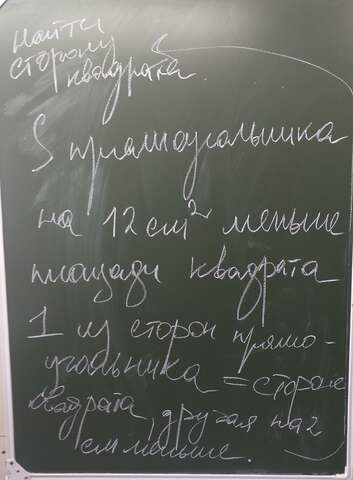 найти
сторону
квадрата.
S прямоугольника
на 12 см² меньше
площади квадрата
1 из сторон прямо-
угольника = стороне
квадрата, другая на 2
см меньше.